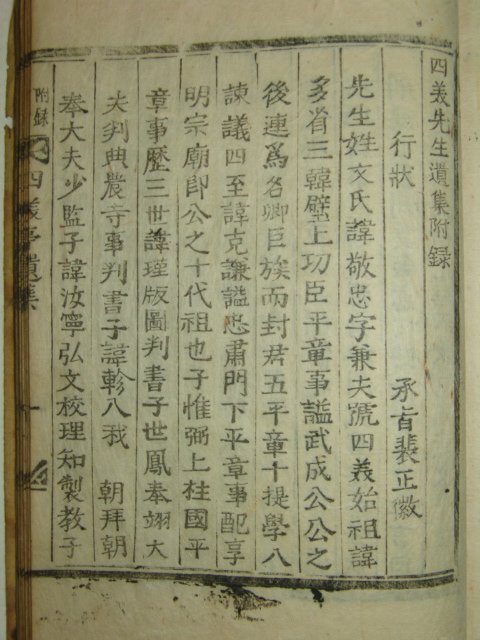 四義先生遺集附錄
行狀 承旨裴正徽
先生姓文氏諱敬忠字兼夫號四義始祖諱
多省三韓壁上功臣平章事謚武成公公之
後連爲名卿巨族而封君五平章十提學八
諫議四至諱克謙謚忠肅門下平章事配享
明宗廟卽公之十代祖也子惟弼上柱國平
章事歷三世諱瑾版圖判書子世鳳奉翊大
夫判典農寺事判書子諱軫入我 朝拜朝
奉大夫少監子諱汝寧弘文校理知製敎子
附錄
四義亭遺集
一